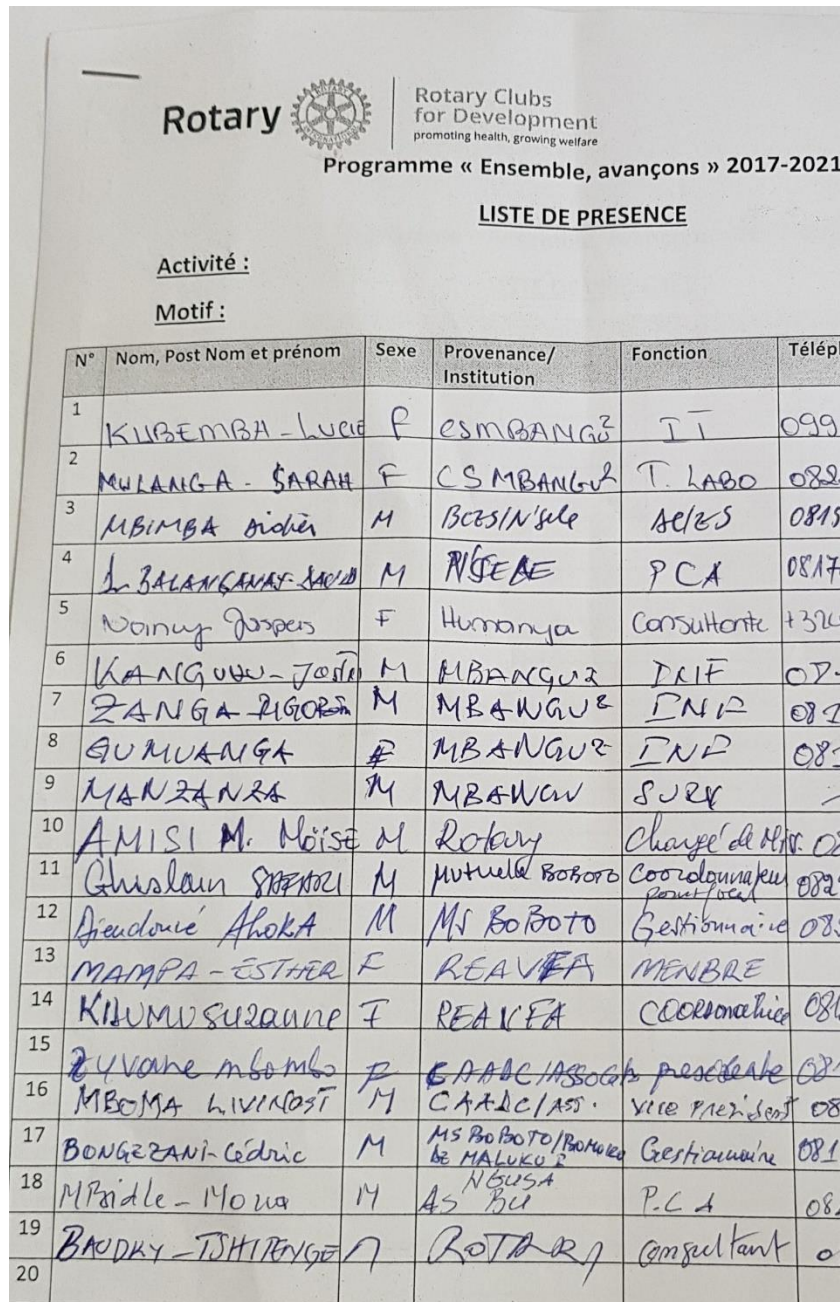 Rotary
Rotary Clubs
for Development
promoting health, growing welfare
Programme « Ensemble, avançons » 2017-2021
LISTE DE PRESENCE
Activité :
Motif :
N° Nom, Post Nom et prénom Sexe Provenance/ Institution Fonction Télép
1 KUBEMBA - Lucie F CSMBANGU2 IT 099
2 MULANGA - SARAH F CS MBANGU2 T. LABO 082
3 MBIMBA Didier M BCZS/N'sele AC/ZS 0819
4 M N'SELE PCA 0817
5 Nancy Jaspers F Humanya Consultante +32
6 M MBANGU2
7 ZANGA M MBANGU2 INF 081
8 GUMUANGA F MBANGU2 INF 08
9 MANZANZA M MBANGU
10 AMISI M. Moïse M Rotary Chargé de Miss. 08
11 Ghislain SAFARI M Mutuelle BOBOTO Coordonnateur point focal 082
12 Dieudonné AhoKA M MS BOBOTO Gestionnaire 08
13 MAMPA - ESTHER F REAVEA MENBRE
14 Suzanne F REAVEA 08
15 Yvone mbombo F CAADC/ 08
16 MBOMA M CAADC/ASS. vice President 08
17 BONGEZANI - Cédric M MS BOBOTO/ DE MALUKU Gestionnaire 081
18 M P.C.A 08
19 BAUDRY - TSHIPENGE M ROTARY Consultant 0
20